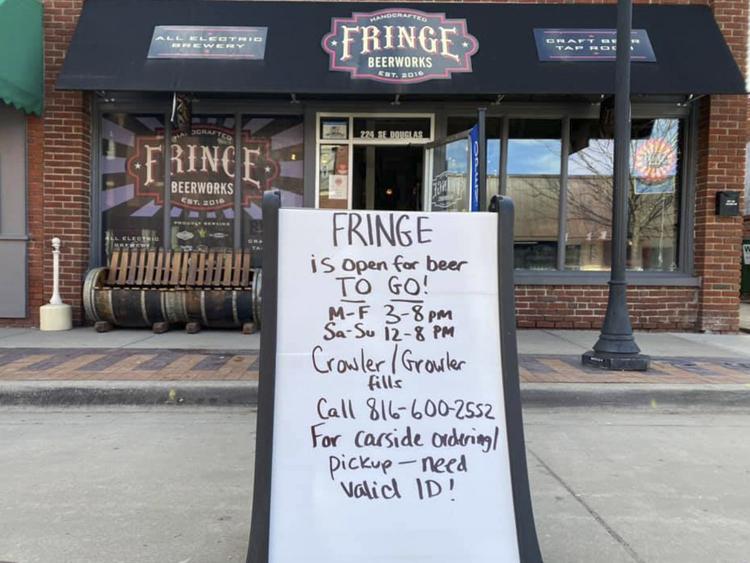 HANDCRAFTED
FRINGE
BEERWORKS
EST. 2016
ALL ELECTRIC
BREWERY
CRAFT BEER
TAP ROOM
224 SE DOUGLAS
FRINGE
BEERWORKS
EST. 2016
PROUDLY SERVING
ALL ELECTRIC
BREWERY
FRINGE
is open for beer
TO GO!
M-F 3-8 pm
Sa-Su 12-8 PM
Crowler/Growler
fills
Call 816-600-2552
For carside ordering/
pickup - need
Valid ID!